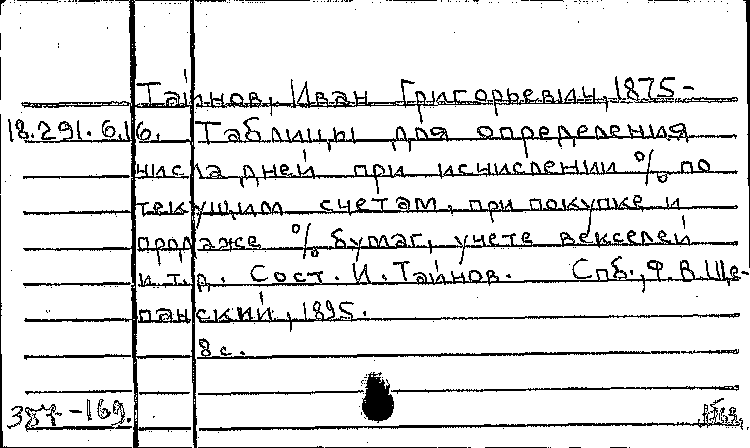 Тайнов, Иван Григорьевич, 1875-
18.291.6.16. Таблицы для определения
числа дней при исчислении % по
текущим счетам, при покупке и
продаже % бумаг, учете векселей
и т.д. Сост. И. Тайнов. Спб., Ф.В. Ще-
панский, 1895.
8 с.
387-169.